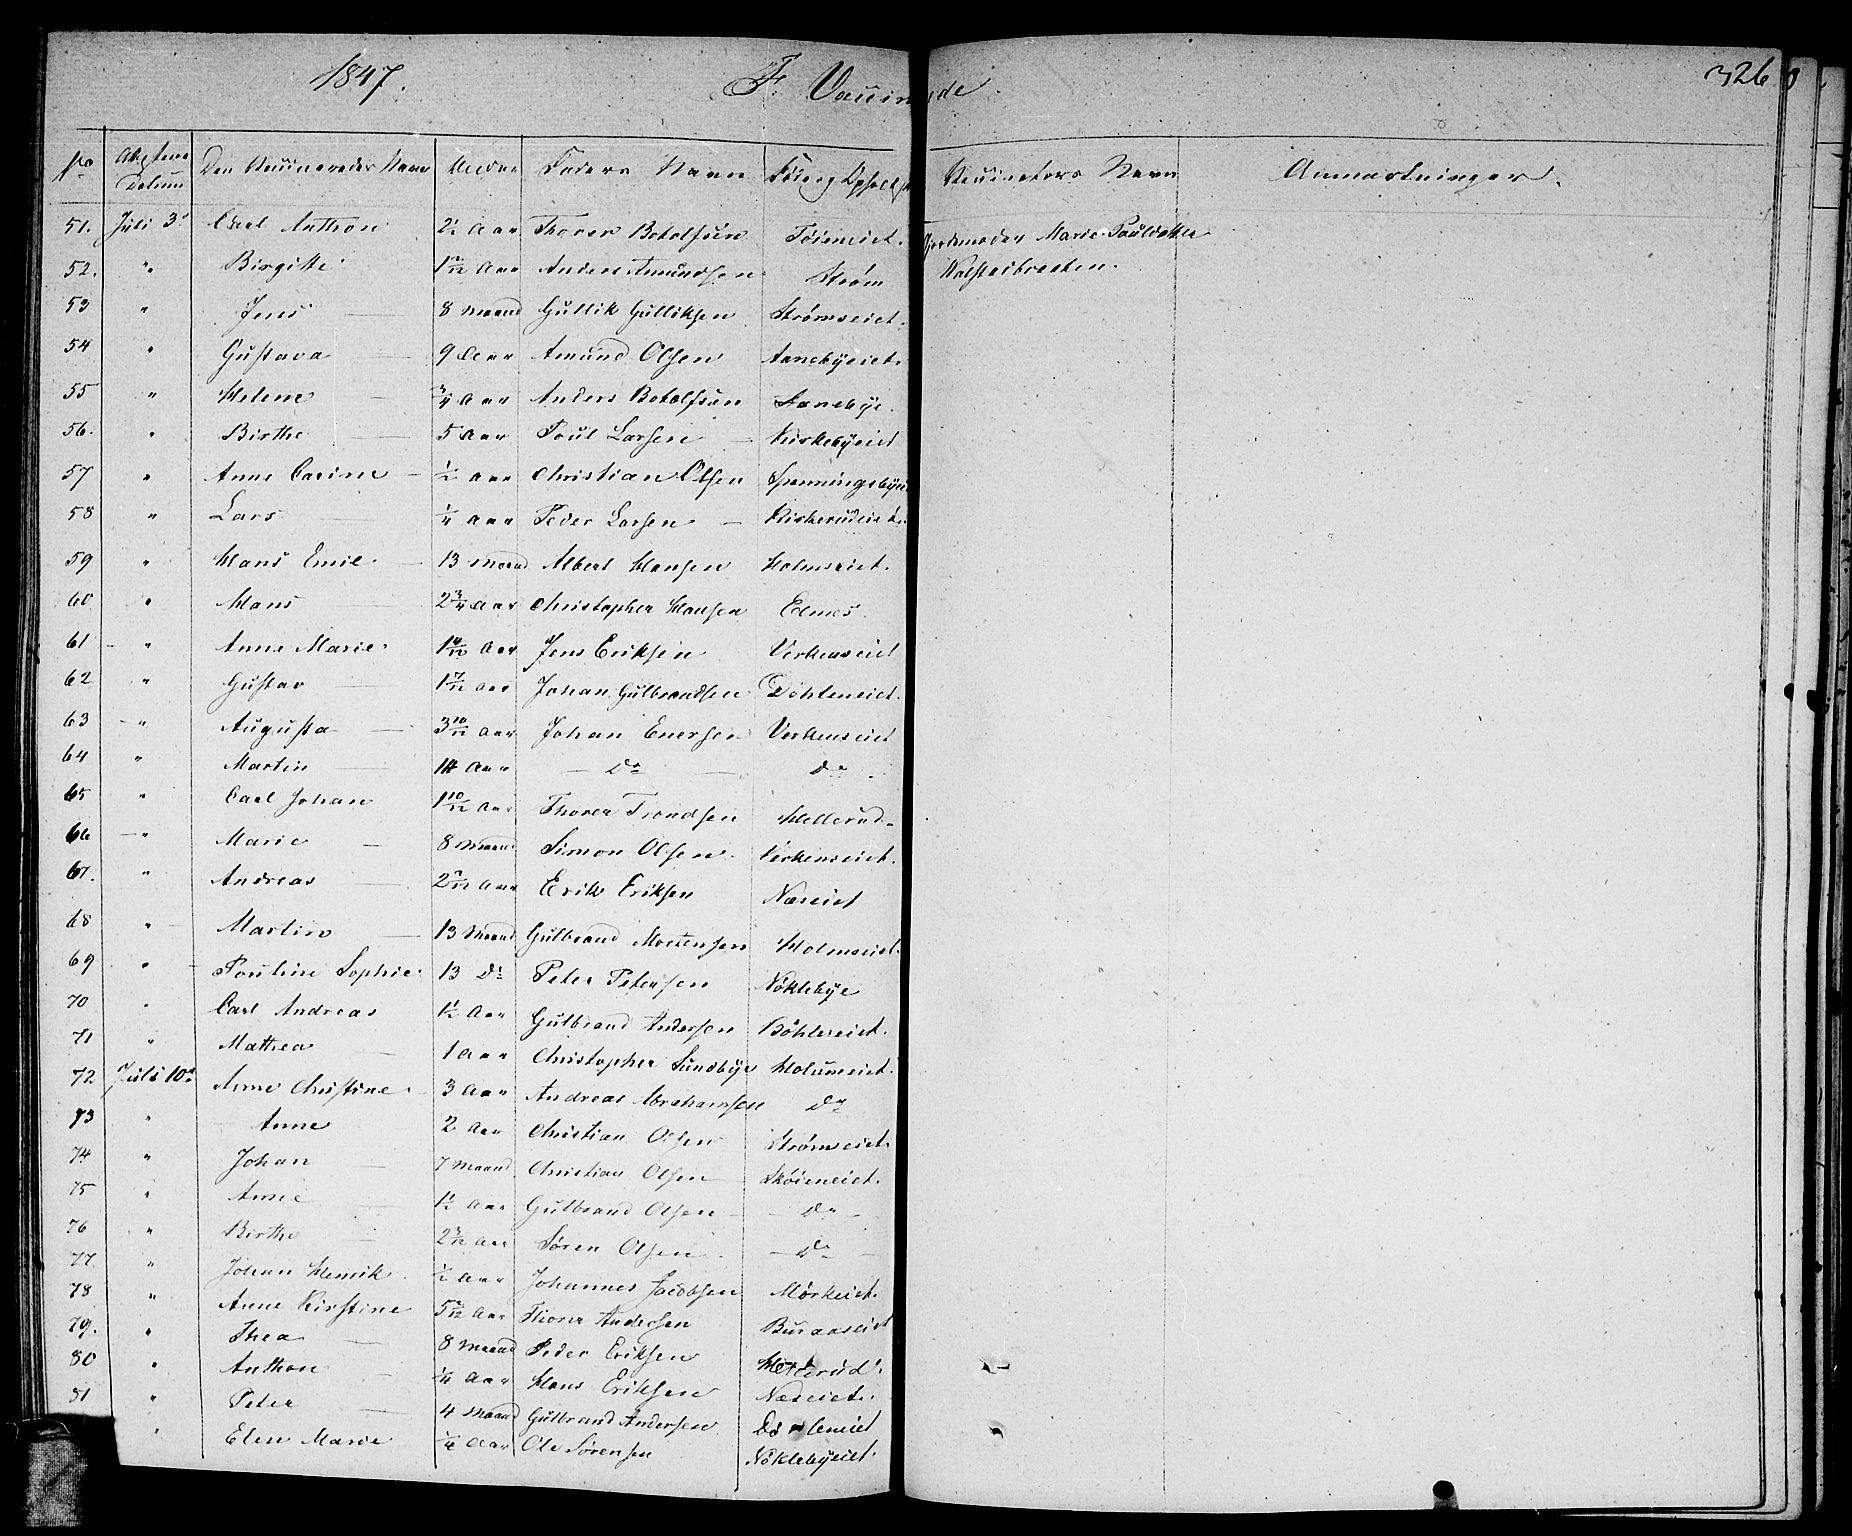 1847. F. Vaccinerede 326
No Attestens Datum Den Vaccineredes Navn Alder Faders Navn Vaccinators Navn Anmærkninger.
51. Juli 3d Carl Anthon 2½ Aar Thorer Botolfsen Töieneiet. Gjordemoder Marie Poulsdatter
52. " Birgitte 1 Aar Anders Amundsen Strøm
53 " Jens 8 Maand Gullik Gulliksen Strømseiet.
54 " Gustava 9 Aar Amund Olsen Aanebyeiet.
55 " Helene ¾ Aar Anders Botolfsen Aanebye.
56. " Birthe 5 Aar Poul Larsen Kirkebyeiet
57 " Anne Carine ½ Aar Christian Olsen
58 " Lars ¼ Aar Peder Larsen
59 " Hans Emil 13 Maand Albert Hansen Holmseiet.
60 " Hans 2¾ Aar Christopher Hansen Elnes.
61 " Anne Marie 1 Aar Jens Eriksen Verkenseiet
62 " Gustav 1 7/12 Aar Johan Gulbrandsen Döhleneiet.
63 " Augusta 3 10/12 Aar Johan Enersen Verkenseiet
64 " Martin 14 Aar Do Do
65 " Carl Johan 1 10/12 Aar Thorer Trondsen Hellerud
66 " Marie 8 Maand Simon Olsen Verkenseiet.
67. " Andreas 2 Aar Erik Eriksen Næseiet
68 " Martin 13 Maand Gulbrand Mortensen Holmseiet.
69 " Pouline Sophie 13 Do Peter Petersen Nöklebye
70 " Carl Andreas 1½ Aar Gulbrand Andersen Böhlereiet.
71 " Mathea 1 Aar Christopher Sundbye Holumeiet.
72 Juli 10de Anne Christine 3 Aar Andreas Abrahamsen Do
73 " Anne 2 Aar Christian Olsen Strømseiet.
74 " Johan 7 Maand Christian Olsen Sköieneiet.
75 " Anne 1½ Aar Gulbrand Olsen Do
76 " Birthe 2 Aar Søren Olsen Do
77 " Johan Henrik ½ Aar Johannes Jacobsen Mørkeiet.
78 " Anne Kirstine 5 Aar Thorer Andersen Buraaseiet
79. " Thea 8 Maand Peder Eriksen Hellerud
80 " Anthon ¼ Aar Hans Eriksen Næseiet.
81 " Peter 4 Maand Gulbrand Andersen
" Elen Marie ¼ Aar Ole Sörensen Nöklebyeiet.